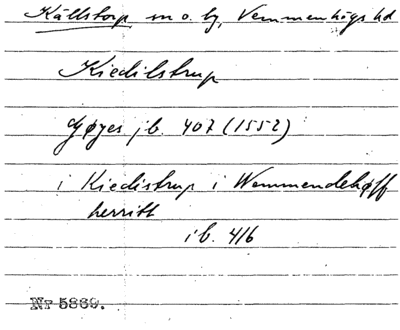 Källstorp sn o. by, Vemmenhögs hd
Kiedilstrup
Gøyes jb. 407 (1552)
i Kiedistrup i Wemmendehøff
herritt
ib. 416
Nr 5869.